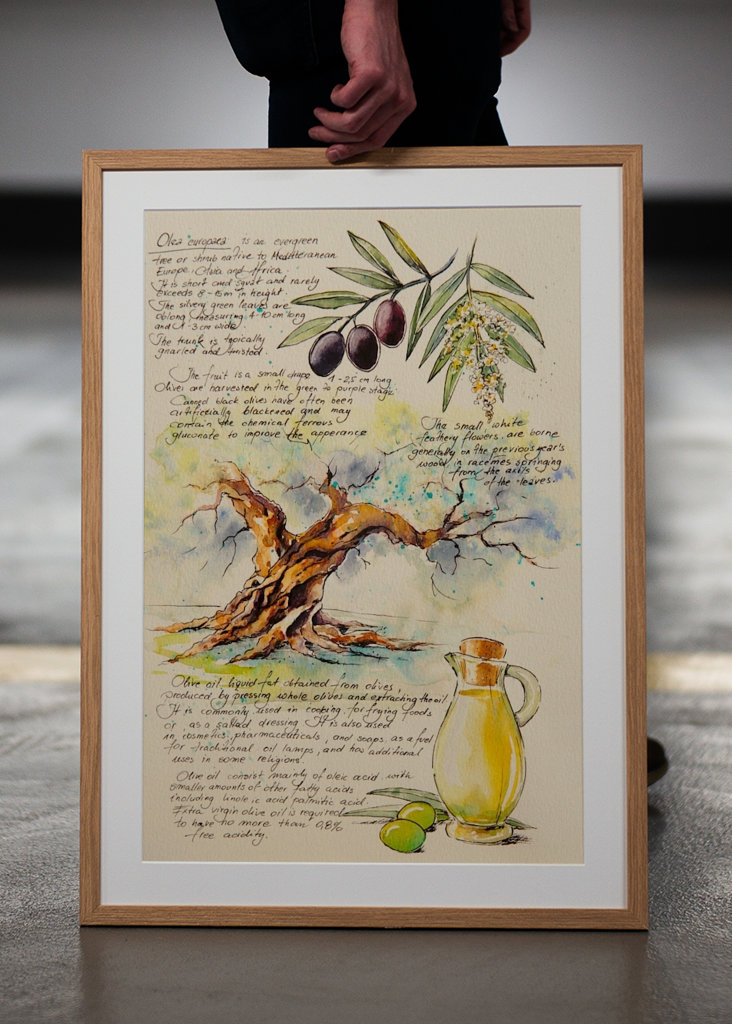 Olea europaea is an evergreen
tree or shrub native to Mediterranean
Europe, Asia and Africa.
It is short and squat and rarely
exceeds 8-15m in height.
The silvery green leaves are
oblong, measuring 4-10 cm long
and 1-3 cm wide.
The trunk is typically
gnarled and twisted.
The fruit is a small drupe 1-2,5 cm long
Olives are harvested in the green to purple stage
Canned black olives have often been
artificially blackened and may
contain the chemical ferrous
gluconate to improve the apperance
The small white
feathery flowers are borne
generally on the previous year's
wood, in racemes springing
from the axils
of the leaves.
Olive oil liquid fat obtained from olives,
produced by pressing whole olives and extracting the oil
It is commonly used in cooking for frying foods
or as a salad dressing It is also used
in cosmetics, pharmaceuticals, and soaps, as a fuel
for traditional oil lamps, and has additional
uses in some religions.
Olive oil consist mainly of oleic acid with
smaller amounts of other fatty acids
including linoleic acid palmitic acid.
Extra virgin olive oil is required
to have no more than 0,8%
free acidity.